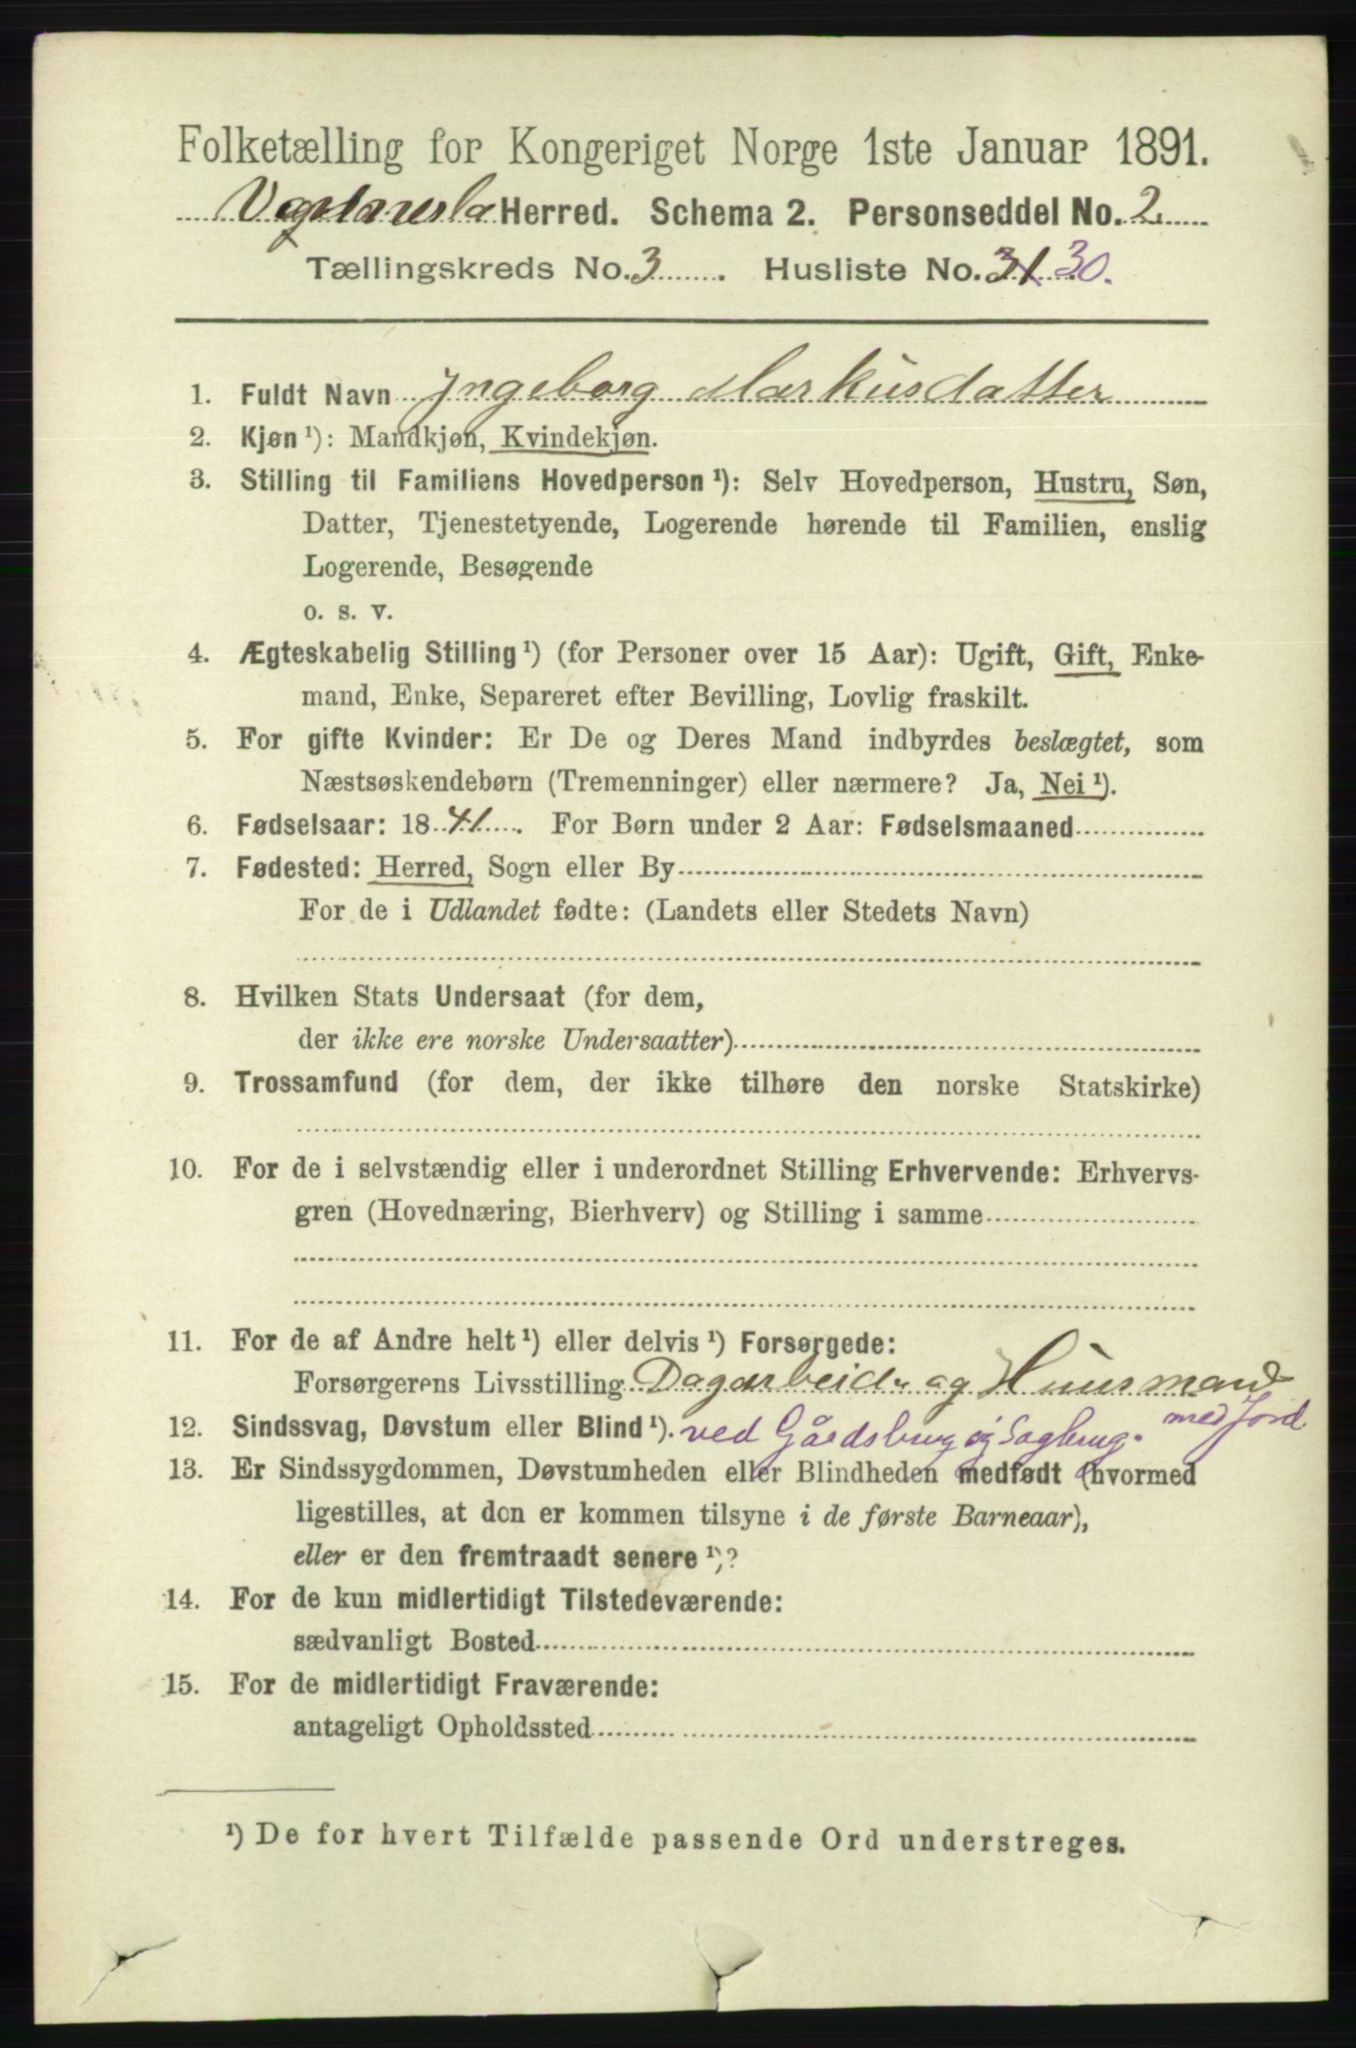 Folketælling for Kongeriget Norge 1ste Januar 1891.
Herred. Schema 2. Personseddel No. 2
Tællingskreds No. 3. Husliste No. 31 30.
1. Fuldt Navn Ingeborg Markusdatter
2. Kjøn ¹): Mandkjøn, Kvindekjøn.
3. Stilling til Familiens Hovedperson ¹): Selv Hovedperson, Hustru, Søn,
Datter, Tjenestetyende, Logerende hørende til Familien, enslig
Logerende, Besøgende
o. s. v.
4. Ægteskabelig Stilling ¹) (for Personer over 15 Aar): Ugift, Gift, Enke-
mand, Enke, Separeret efter Bevilling, Lovlig fraskilt.
5. For gifte Kvinder: Er De og Deres Mand indbyrdes beslægtet, som
Næstsøskendebørn (Tremenninger) eller nærmere? Ja, Nei ¹).
6. Fødselsaar: 1841. For Børn under 2 Aar: Fødselsmaaned
7. Fødested: Herred, Sogn eller By
For de i Udlandet fødte: (Landets eller Stedets Navn)
8. Hvilken Stats Undersaat (for dem,
der ikke ere norske Undersaatter)
9. Trossamfund (for dem, der ikke tilhøre den norske Statskirke)
10. For de i selvstændig eller i underordnet Stilling Erhvervende: Erhvervs-
gren (Hovednæring, Bierhverv) og Stilling i samme
11. For de af Andre helt ¹) eller delvis ¹) Forsørgede:
Forsørgerens Livsstilling Dagarbeider og Huusmand
med Jord
12. Sindssvag, Døvstum eller Blind ¹). ved Gårdsbrug og Sagbrug.
13. Er Sindssygdommen, Døvstumheden eller Blindheden medfødt (hvormed
ligestilles, at den er kommen tilsyne i de første Barneaar),
eller er den fremtraadt senere ¹)?
14. For de kun midlertidigt Tilstedeværende:
sædvanligt Bosted
15. For de midlertidigt Fraværende:
antageligt Opholdssted
¹) De for hvert Tilfælde passende Ord understreges.